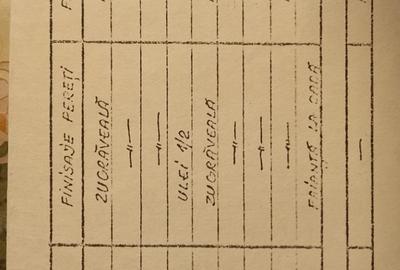 FINISAJE PERETI
ZUGRĂVEALĂ
—"—
—"—
ULEI 1/2
ZUGRĂVEALĂ
—"—
—"—
—"—
FAIANȚĂ LA CADĂ
—